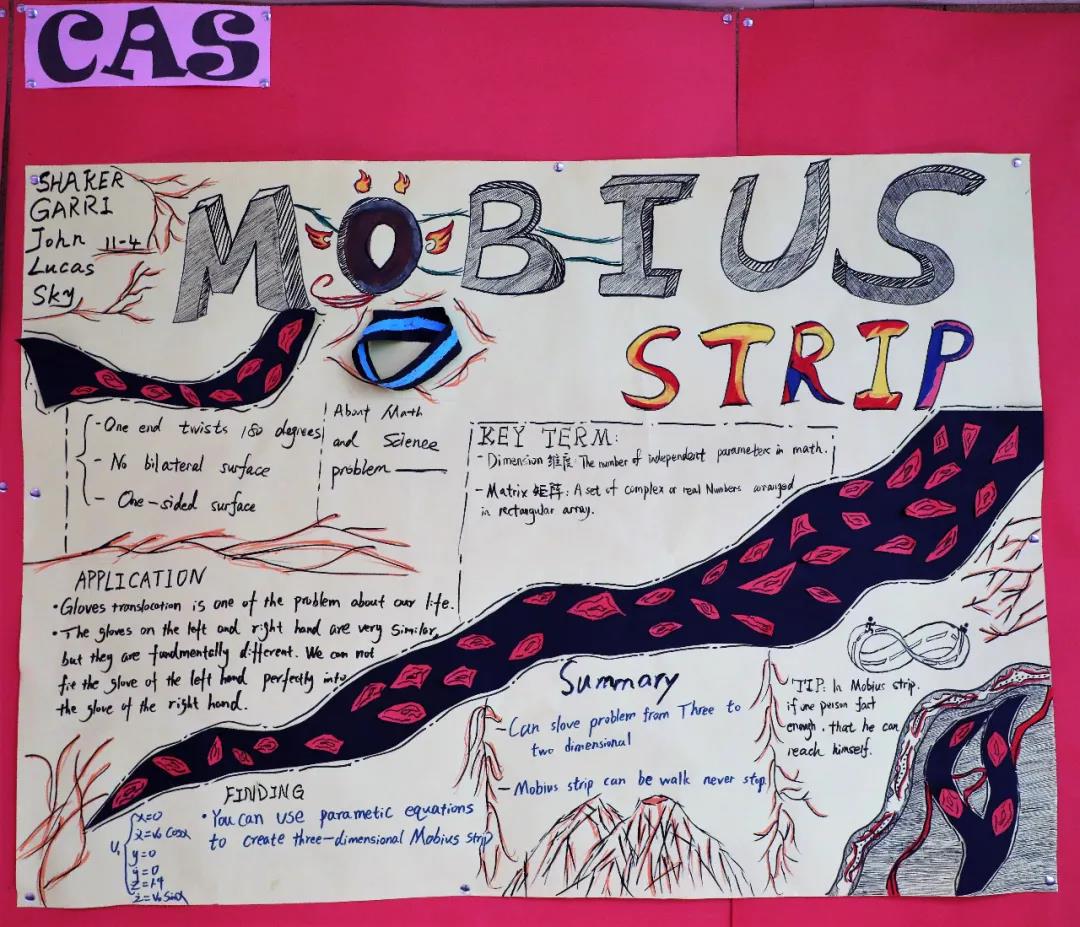 CAS
SHAKER
GARRI
John 11-4
Lucas
Sky
MÖBIUS
STRIP
- One end twists 180 degrees
- No bilateral surface
- One-sided surface
About Math
and Science
problem
KEY TERM:
- Dimension 维度: The number of independent parameters in math.
- Matrix 矩阵: A set of complex or real Numbers arranged
in rectangular array.
APPLICATION
• Gloves translocation is one of the problem about our life.
• The gloves on the left and right hand are very similar,
but they are fundmentally different. We can not
fit the glove of the left hand perfectly into
the glove of the right hand.
Summary
- Can slove problem from Three to
two dimensional
- Mobius strip can be walk never stop
TIP: In Mobius strip.
if one person fast
enough, that he can
reach himself.
FINDING
• You can use parametic equations
to create three-dimensional Mobius strip
x=0
y=0